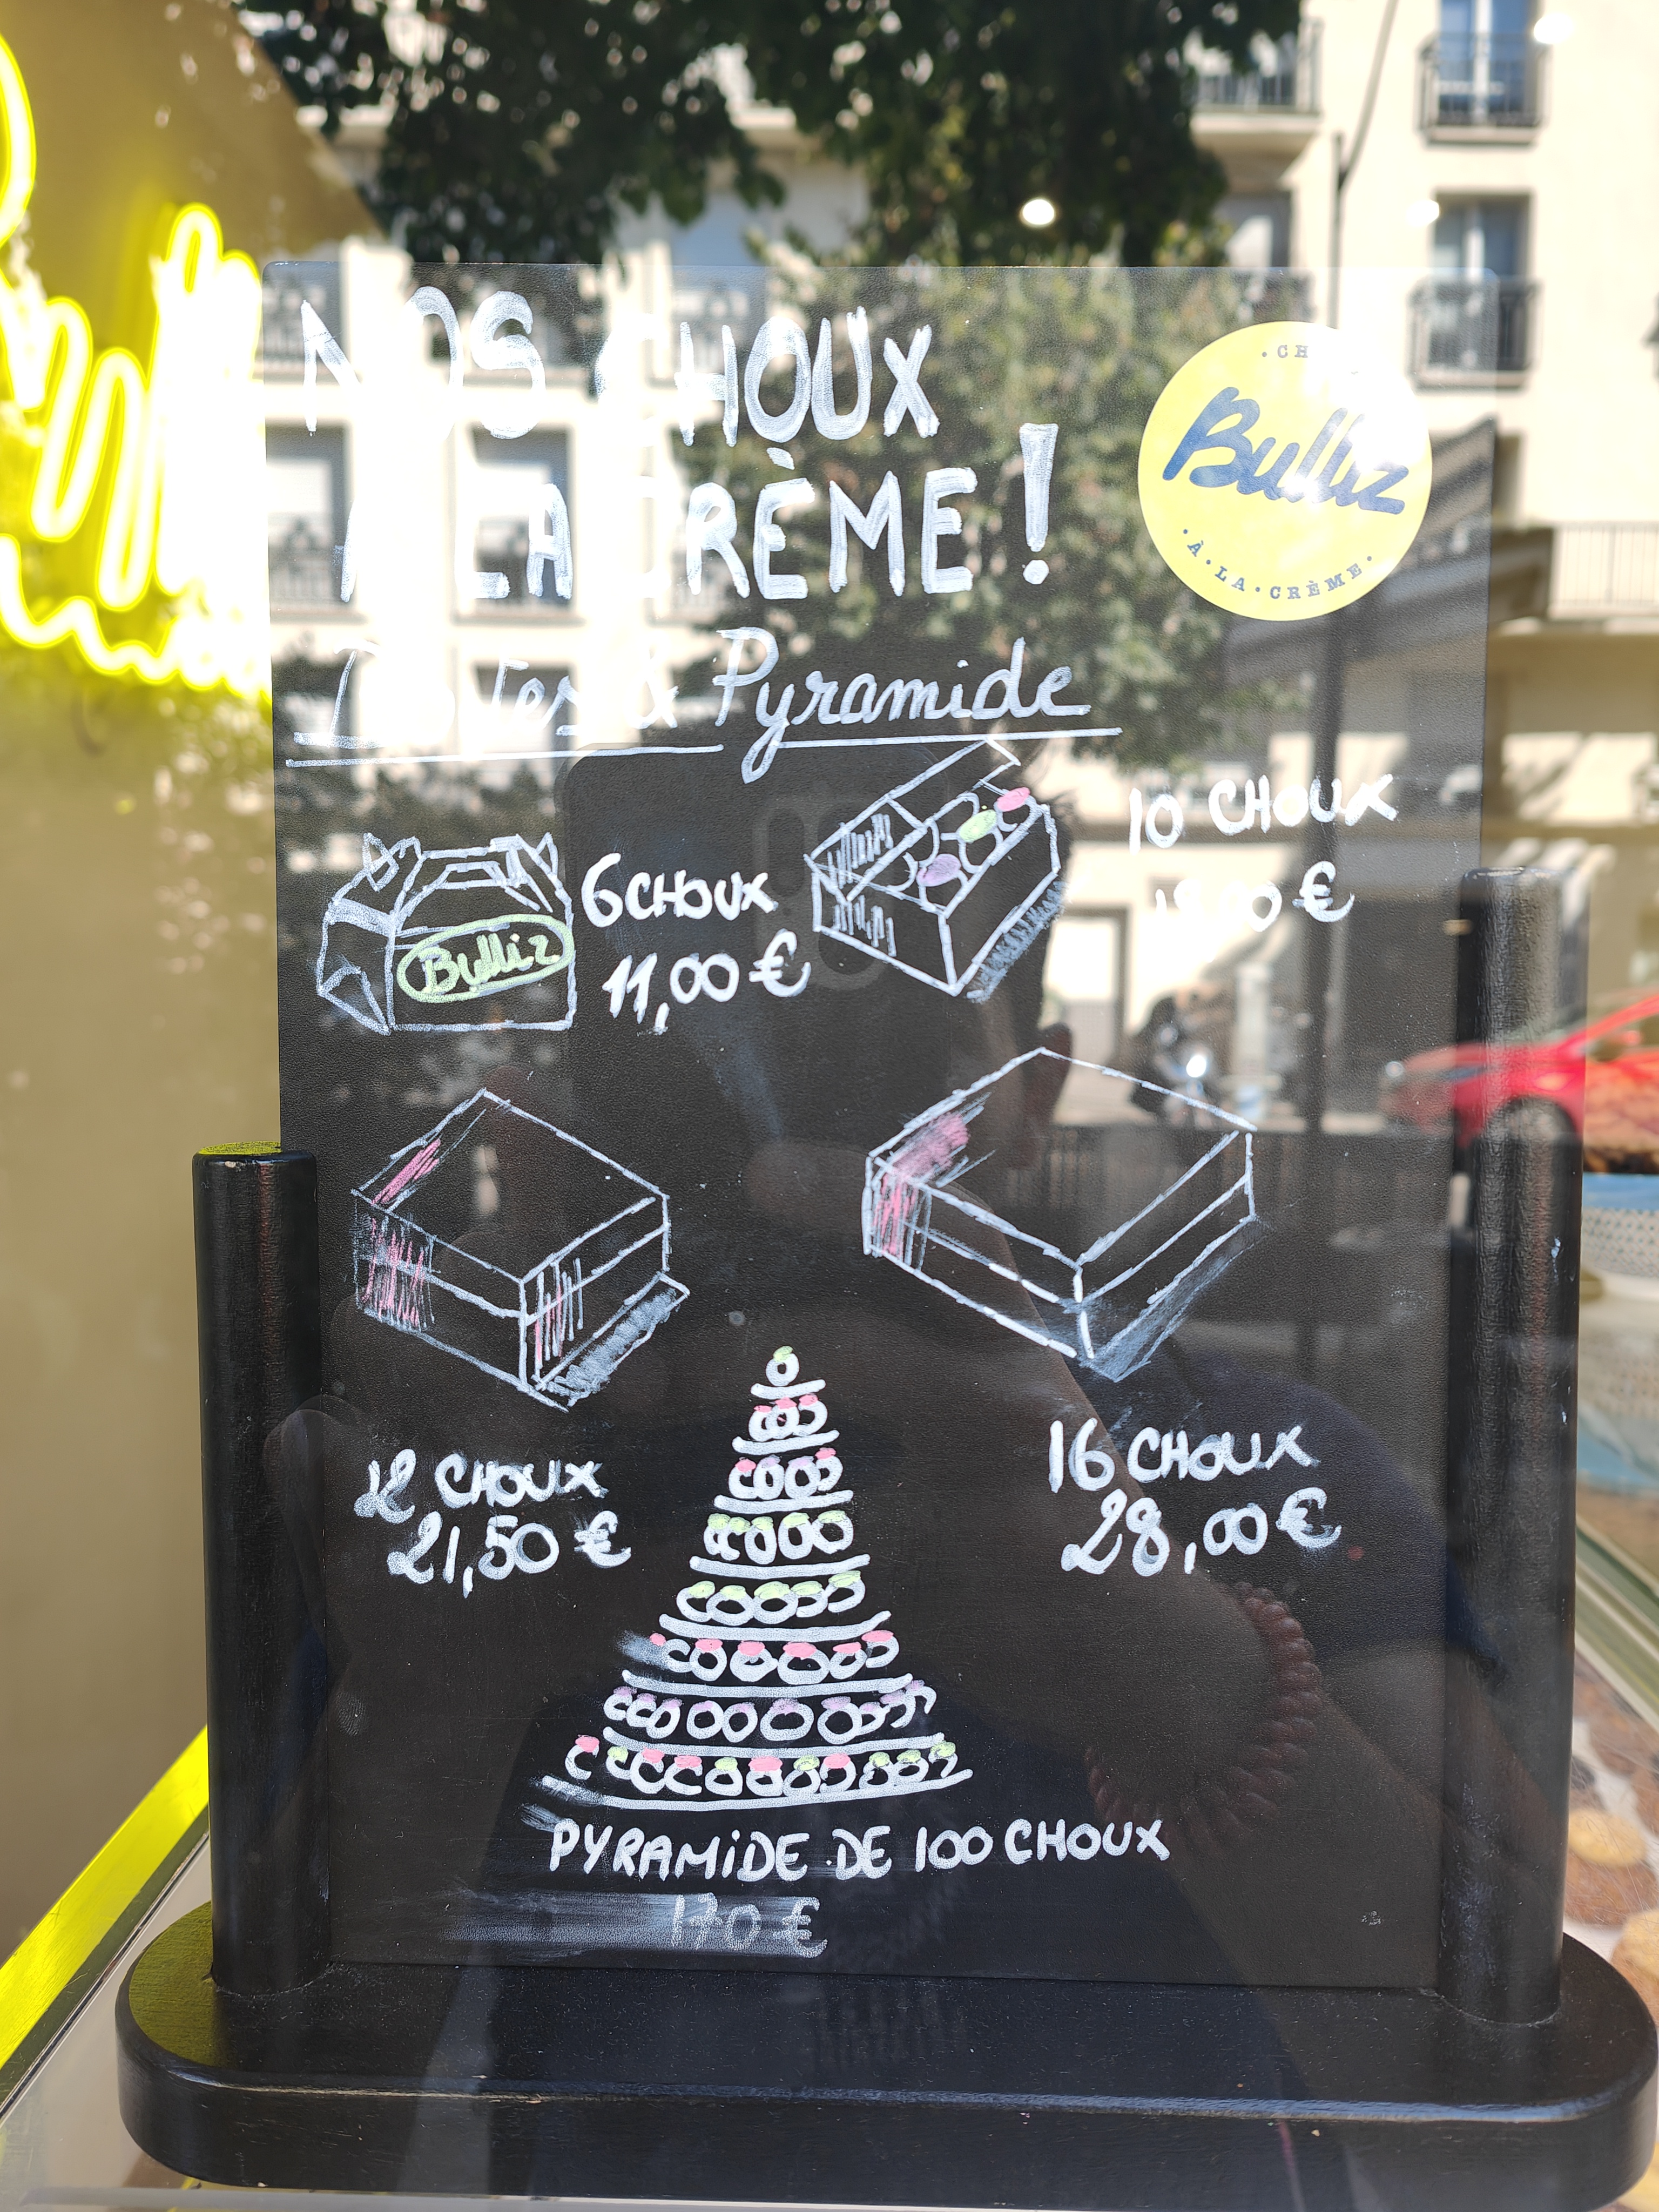 NOS CHOUX
À LA CRÈME !
Bulliz
• À • LA • CRÈME •
Boîtes & Pyramide
6 CHOUX
11,00 €
Bulliz
10 CHOUX
€
12 CHOUX
21,50 €
16 CHOUX
28,00 €
PYRAMIDE DE 100 CHOUX
170 €